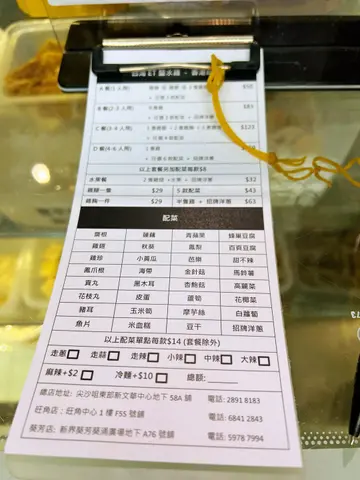 台灣 ET 鹽水雞 - 香港
A 餐(1 人用) $55
B 餐(2-3 人用) $83
C 餐(3-4 人用) $123
D 餐(4-6 人用)
以上套餐另加配菜每款$8
水果餐 $32
雞腿一隻 $29 5 款配菜 $43
雞胸一件 $29 半隻雞 + 招牌洋蔥 $63
配菜
腐根 豬雜 青蘋果 蜂巢豆腐
雞翅 秋葵 鳳梨 百頁豆腐
雞珍 小黃瓜 芭樂 甜不辣
鳳爪根 海帶 金針菇 馬鈴薯
貢丸 黑木耳 杏鮑菇 高麗菜
花枝丸 皮蛋 蘆筍 花椰菜
豬耳 玉米筍 摩芋絲 白蘿蔔
魚片 米血糕 豆干 招牌洋蔥
以上配菜單點每款$14 (套餐除外)
走蔥 走蒜 走辣 小辣 中辣 大辣
麻辣+$2 冷麵+$10 總額:
總店地址: 尖沙咀東部新文華中心地下 58A 舖 電話: 2891 8183
旺角店: 旺角中心 1 樓 F55 號舖 電話: 6841 2843
葵芳店: 新界葵芳葵涌廣場地下 A76 號舖 電話: 5978 7994